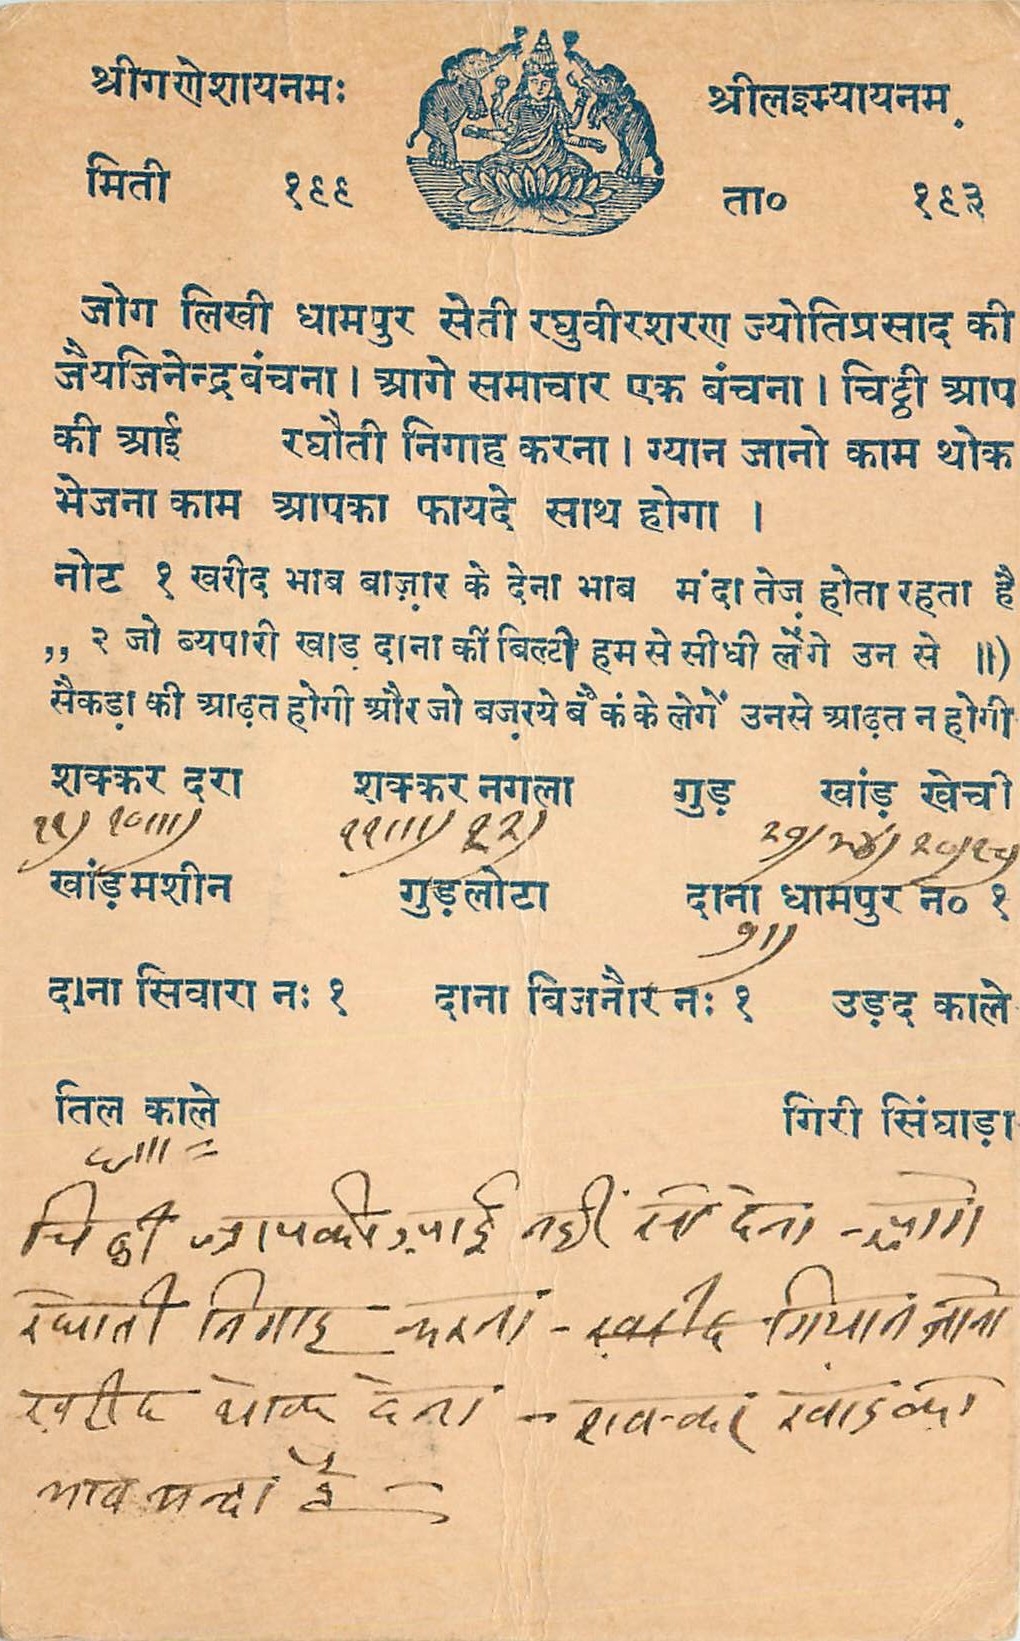 श्रीगणेशायनमः श्रीलक्ष्म्यायनम.
मिती १९९ ता० १९३
जोग लिखी धामपुर सेती रघुवीरशरण ज्योतिप्रसाद की
जैयजिनेन्द्र बंचना । आगे समाचार एक बंचना । चिट्ठी आप
की आई रघौती निगाह करना । ग्यान जानो काम थोक
भेजना काम आपका फायदे साथ होगा ।
नोट १ खरीद भाब बाज़ार के देना भाब मंदा तेज़ होता रहता है
,, २ जो ब्यपारी खाड़ दाना कीं बिल्टी हम से सीधी लेंगे उन से ॥)
सैकड़ा की आढ़त होगी और जो बज़रये बैंकं के लेगें उनसे आढ़त न होगी
शक्कर दरा शक्कर नगला गुड़ खांड़ खेची
११) १०॥।) ११॥।) १२)
खांड़ मशीन गुड़लोटा दाना धामपुर न० १
७॥
दाना सिवारा नः १ दाना बिजनौर नः १ उड़द काले
तिल काले गिरी सिंघाड़ा
चिठी आपकी आई नहीं सो देना आगे
रघोती निगाह करना - खरीद गियान जोना
खरीद थोक देना - शक्कर खांड को
भाव मन्दा है